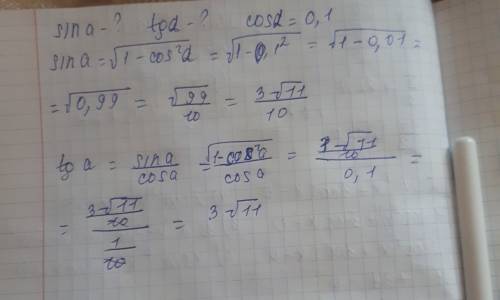 sin a - ? tg α - ? cos α = 0,1
sin a = √(1 - cos²α) = √(1 - 0,1²) = √(1 - 0,01) =
= √(0,99) = √99/10 = 3√11/10
tg a = sin a/cos a = √(1 - cos²a)/cos a = (3√11/10)/0,1 =
= (3√11/10)/(1/10) = 3√11